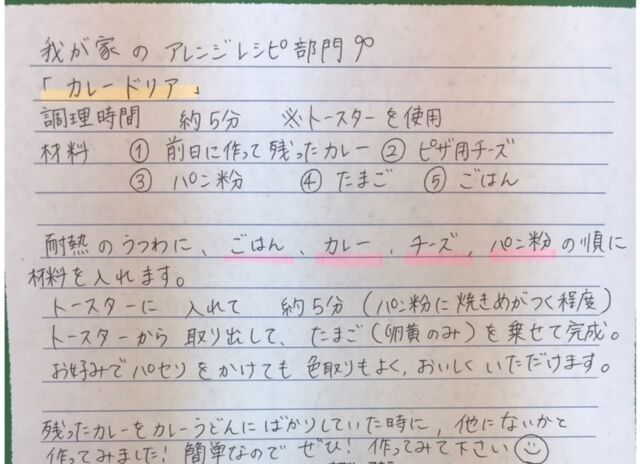 我が家の アレンジレシピ部門
「カレードリア」
調理時間 約5分 ※トースターを使用
材料 ① 前日に作って残ったカレー ② ピザ用チーズ
③ パン粉 ④ たまご ⑤ ごはん
耐熱のうつわに、ごはん、カレー、チーズ、パン粉の順に
材料を入れます。
トースターに 入れて 約5分 (パン粉に焼きめがつく程度)
トースターから 取り出して、たまご(卵黄のみ)を乗せて完成。
お好みでパセリをかけても 色取りもよく、おいしくいただけます。
残ったカレーをカレーうどんにばかりしていた時に、他にないかと
作ってみました! 簡単なので ぜひ! 作ってみて下さい